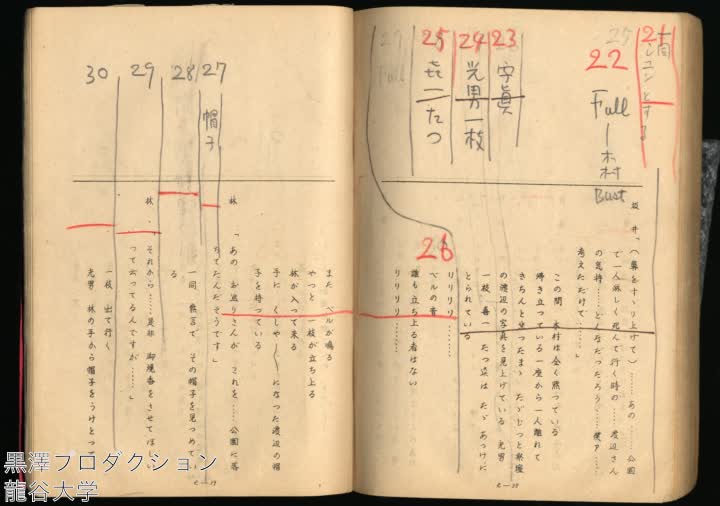 21
一同
シュンとする
22
Full
木村
Bust
23
字眞
24
光男一枝
25
㐂一たつ
26
坂井「(鼻をすゝり上げて)……あの……公園
で一人淋しく死んで行く時の……渡辺さん
の気持……どんなだったろう……僕ア……
考えただけで……」
この間 木村は全く黙っている
帰き立っている一座から一人離れて
きちんと坐ったまゝ たゞじっと祭壇
の渡辺の写真を見上げている 光男
一枝 喜一 たつ達は たゞあっけに
とられている
りりりり………
ベルの音
誰も立ち上る者はない
りりりり………
また ベルが鳴る
やっと 一枝が立ち上る
林が入って来る
手に くしや〳〵になった渡辺の帽
子を持っている
林「あの お巡りさんが これを…… 公園に落
ちてたんだそうです」
一同 無言で その帽子を見つめて
る
林「それから……是非 御燒香をさせてほしい
って云ってるんですが……」
一枝 出て行く
光男 林の手から帽子をうけとって
27
帽子
28
29
30
黒澤プロダクション
龍谷大学